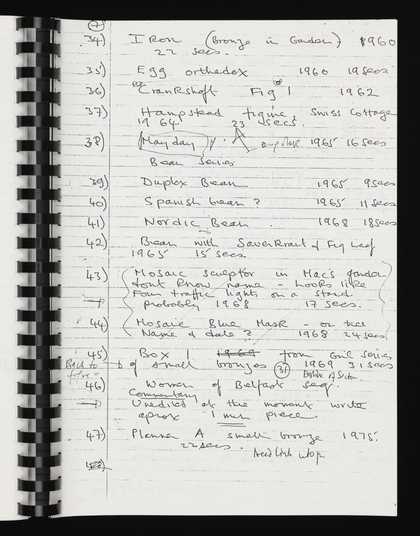 7
34) IRON (Bronze in Garden) 1960
22 secs.
35) Egg orthodox 1960 19 secs
36) Crankshaft Fig 1 1962
37) Hampstead figure, Swiss Cottage
1964. 23 secs.
38) (Mayday) A 1965 16 secs
Bean series
39) Duplex Bean 1965 9 secs
40) Spanish bean? 1965 11 secs
41) Nordic Bean. 1968 18 secs
42) Bean with Sauerkraut & Fig Leaf
1965 15 secs
43) Mosaic sculptor in Macs garden
dont know name - looks like
Four traffic lights on a stand
probably 1968 17 secs.
44) Mosaic Blue Mask - on tree
Name & date? 1968 24 secs
45) Box 1 1969 from Girl series
Back to of small bronzes 1969 31 secs
46) Women of Belfast seq.
Commentary
Unedited at the moment write
aprox 1 min piece.
47) Planner A small bronze 1975.
22 secs. Need link
48)